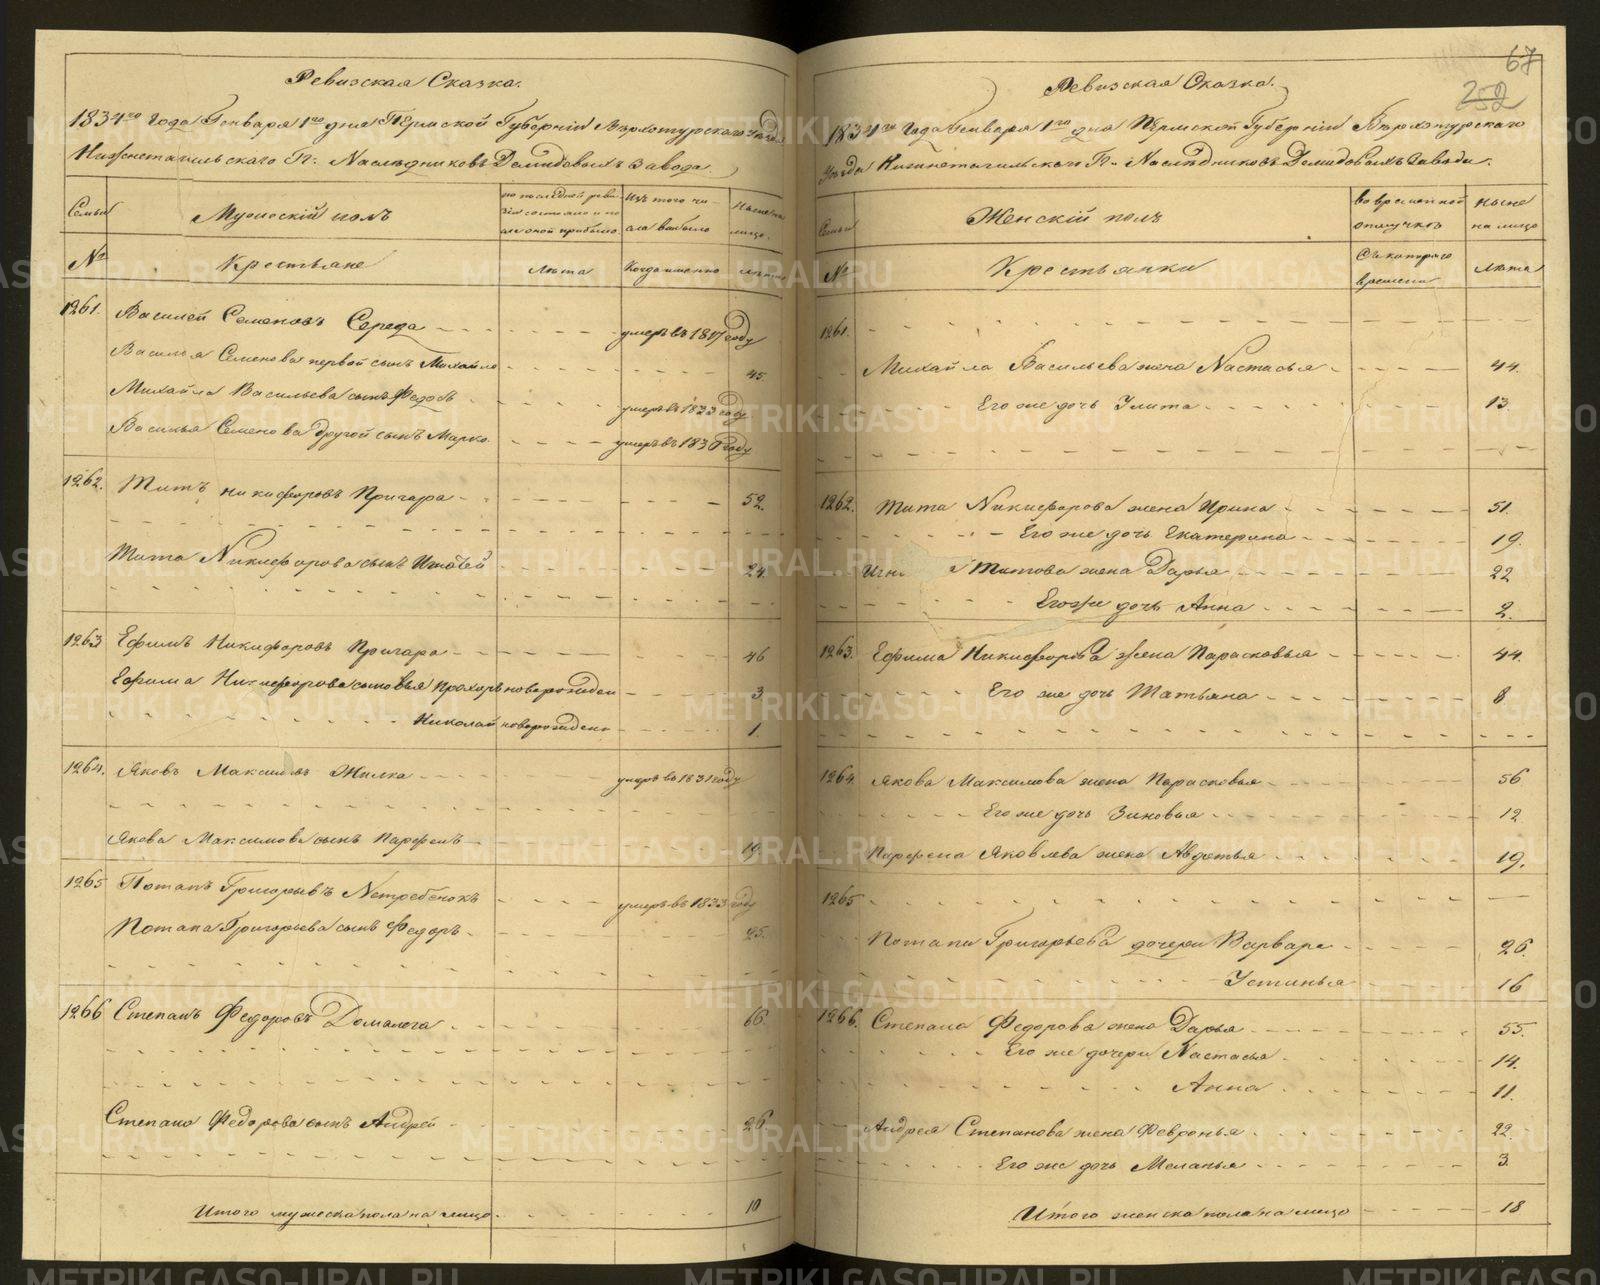 Ревизская Сказка.
1834го Года Генваря 1го дня Пермской Губернiи Верхотурскаго уезда
Нижнетагильскаго Гг. Наследниковъ Демидовыхъ Завода.
Семьи
Мужескiй полъ
по последней реви-
зiи состояло и по-
сле оной прибыло
Изъ того чи-
сла выбыло
Ныне на
лицо.
№
Крестьяне
Лета
Когда именно
Лета
1261. Василей Семеновъ Середа умеръ въ 1817 году
Василья Семенова первой сынъ Михайло 45.
Михайла Васильева сынъ Федоръ умеръ въ 1823 году
Василья Семенова другой сынъ Марко умеръ въ 1830 году
1262. Титъ Никифоровъ Пригара 52.
Тита Никифорова сынъ Игнатей 24.
1263 Ефимъ Никифоровъ Пригара 46
Ефима Никифорова сыновья Прохоръ новорожден 3
Николай новорожден 1.
1264. Яковъ Максимовъ Жилка умеръ въ 1831 году
Якова Максимова сынъ Парфенъ 19
1265 Потапъ Григорьевъ Нетребенокъ умеръ въ 1833 году
Потапа Григорьева сынъ Федоръ 25.
1266 Степанъ Федоровъ Домалога 66.
Степана Федорова сынъ Андрей 26
Итого мужеска пола на лицо 10
67
252
Ревизская Сказка.
1834го Года Генваря 1го дня Пермской Губернiи Верхотурскаго
Уезда Нижнетагильскаго Гг. Наследниковъ Демидовыхъ Завода.
Семьи
Женскiй полъ
во временной
отлучке
Ныне
на лицо
№
Крестьянки
Съ котораго
времени
Лета
1261.
Михайла Васильева жена Настасья 44.
Его же дочь Улита 13.
1262. Тита Никифорова жена Ирина 51.
Его же дочь Екатерина 19.
Игн Титова жена Дарья 22
Его же дочь Анна 2.
1263. Ефима Никифорова жена Парасковья 44.
Его же дочь Татьяна 8
1264 Якова Максимова жена Парасковья 56
Его же дочь Зиновья 12
Парфена Яковлева жена Авдотья 19.
1265
Потапа Григорьева дочери Варвара 26.
Устинья 16
1266. Степана Федорова жена Дарья 55.
Его же дочери Настасья 14.
Анна 11.
Андрея Степанова жена Февронья 22
Его же дочь Меланья 3.
Итого женска пола на лицо 18
METRIKI.GASO-URAL.RU